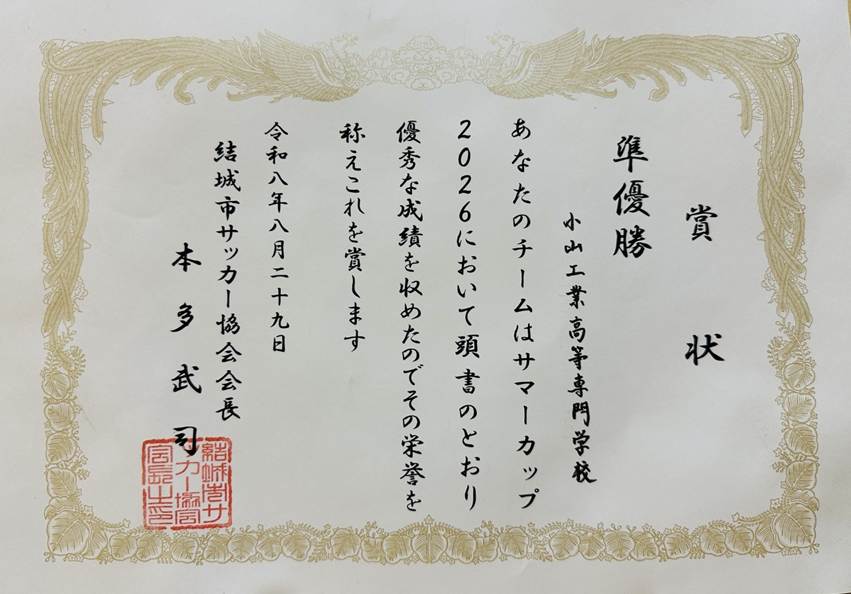 賞状
準優勝
小山工業高等専門学校
あなたのチームはサマーカップ
2026において頭書のとおり
優秀な成績を収めたのでその栄誉を
称えこれを賞します
令和八年八月二十九日
結城市サッカー協会会長
本多武司
結城市サ
ッカー協会
会長之印